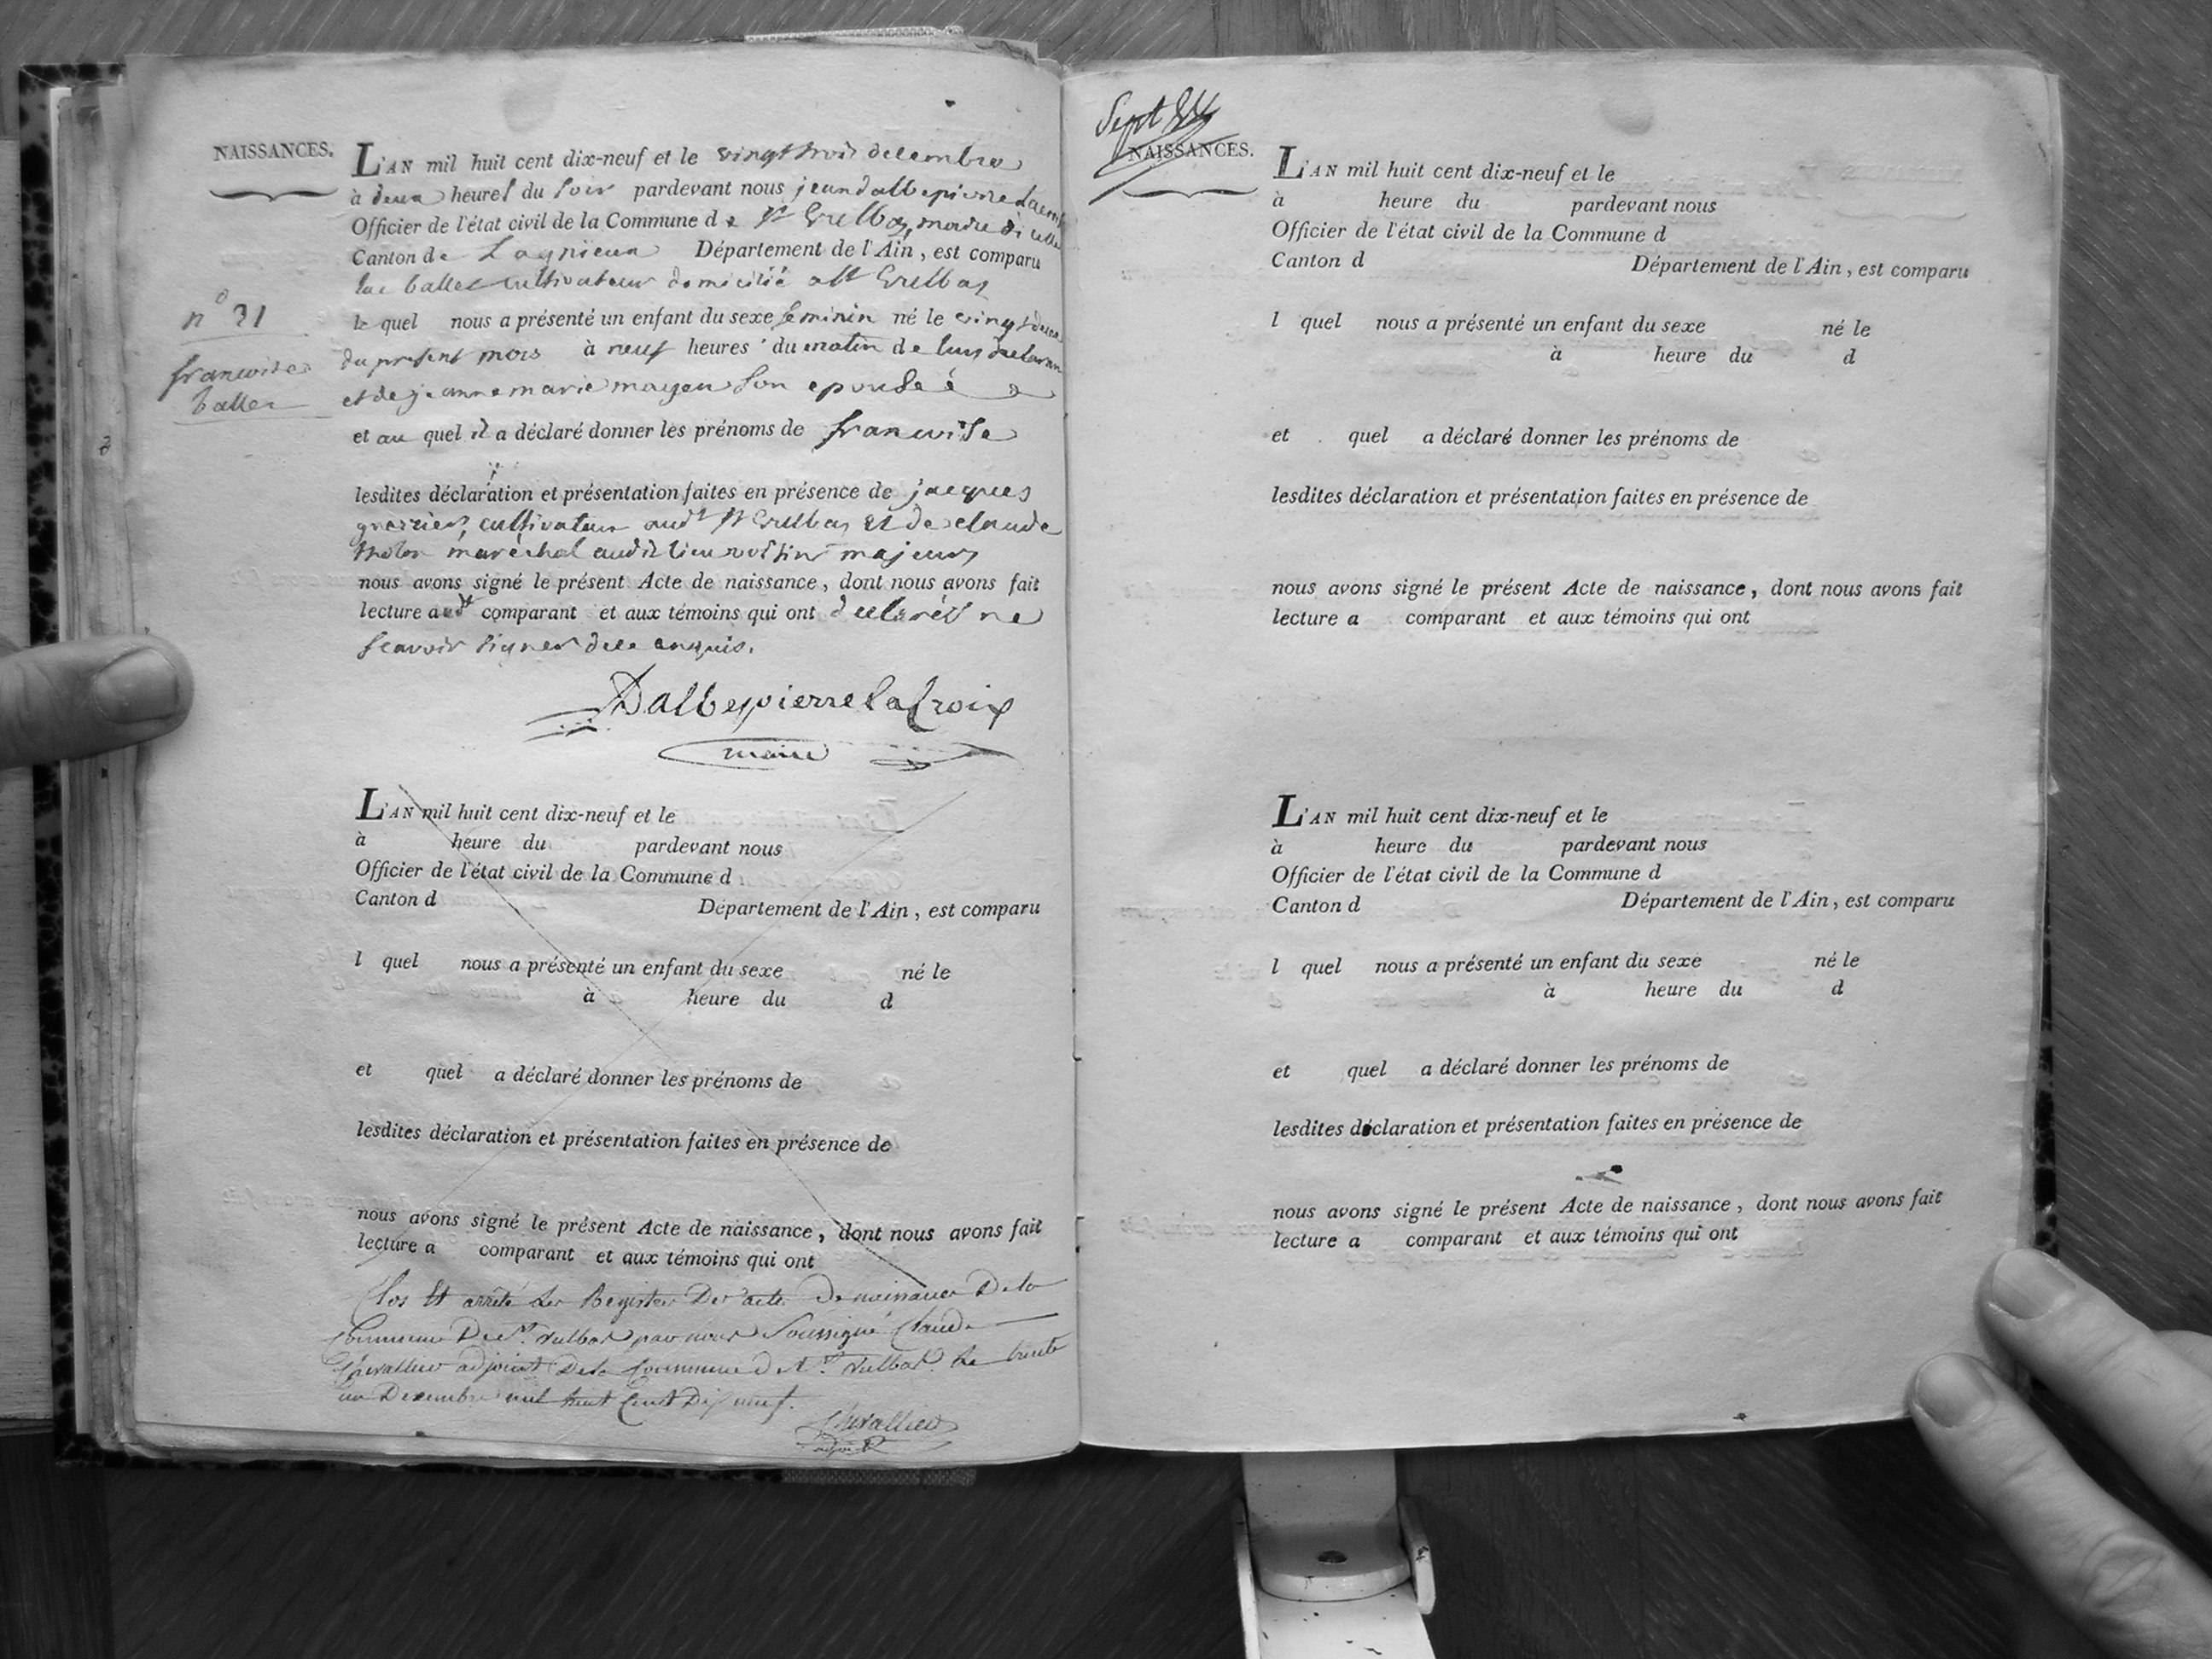 NAISSANCES.
L'AN mil huit cent dix-neuf et le vingt trois decembre
à deux heures du soir pardevant nous jean dalbepierre lacroix
Officier de l'état civil de la Commune de St Vulbas, maire dicelle
Canton de Lagnieux Département de l'Ain, est comparu
luc ballet cultivateur domicilié a St Vulbas
n° 31
le quel nous a présenté un enfant du sexe feminin né le vingt deux
francoise
ballet
du present mois à neuf heures du matin de luy declarant
et de jeanne marie mayeu son epouse
et au quel il a déclaré donner les prénoms de francoise
lesdites déclaration et présentation faites en présence de jacques
cultivateur audt St Vulbas et de claude
maréchal audit lieu voisins majeurs
nous avons signé le présent Acte de naissance, dont nous avons fait
lecture audt comparant et aux témoins qui ont declarés ne
scavoir signer de ce enquis.
Dalbepierre laCroix
maire
L'AN mil huit cent dix-neuf et le
à heure du pardevant nous
Officier de l'état civil de la Commune d
Canton d Département de l'Ain, est comparu
l quel nous a présenté un enfant du sexe né le
à heure du d
et quel a déclaré donner les prénoms de
lesdites déclaration et présentation faites en présence de
nous avons signé le présent Acte de naissance, dont nous avons fait
lecture a comparant et aux témoins qui ont
Clos et arrêté le Registre Des actes De naissance De la
Commune De St. Vulbas par nous Soussigné Claude
Chevallier adjoint De la Commune De St. Vulbas Le trente
un Decembre mil huit Cent Dix neuf.
Chevallier
adjoint
Sept
NAISSANCES.
L'AN mil huit cent dix-neuf et le
à heure du pardevant nous
Officier de l'état civil de la Commune d
Canton d Département de l'Ain, est comparu
l quel nous a présenté un enfant du sexe né le
à heure du d
et quel a déclaré donner les prénoms de
lesdites déclaration et présentation faites en présence de
nous avons signé le présent Acte de naissance, dont nous avons fait
lecture a comparant et aux témoins qui ont
L'AN mil huit cent dix-neuf et le
à heure du pardevant nous
Officier de l'état civil de la Commune d
Canton d Département de l'Ain, est comparu
l quel nous a présenté un enfant du sexe né le
à heure du d
et quel a déclaré donner les prénoms de
lesdites déclaration et présentation faites en présence de
nous avons signé le présent Acte de naissance, dont nous avons fait
lecture a comparant et aux témoins qui ont